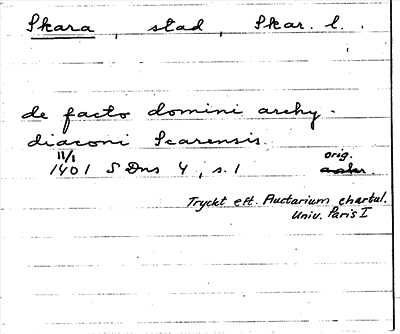 Skara, stad, Skar. l.
de facto domini archy-
diaconi Scarensis.
11/1
1401 SDns 4, s. 1
orig.
Tryckt eft. Auctarium chartul.
Univ. Paris I